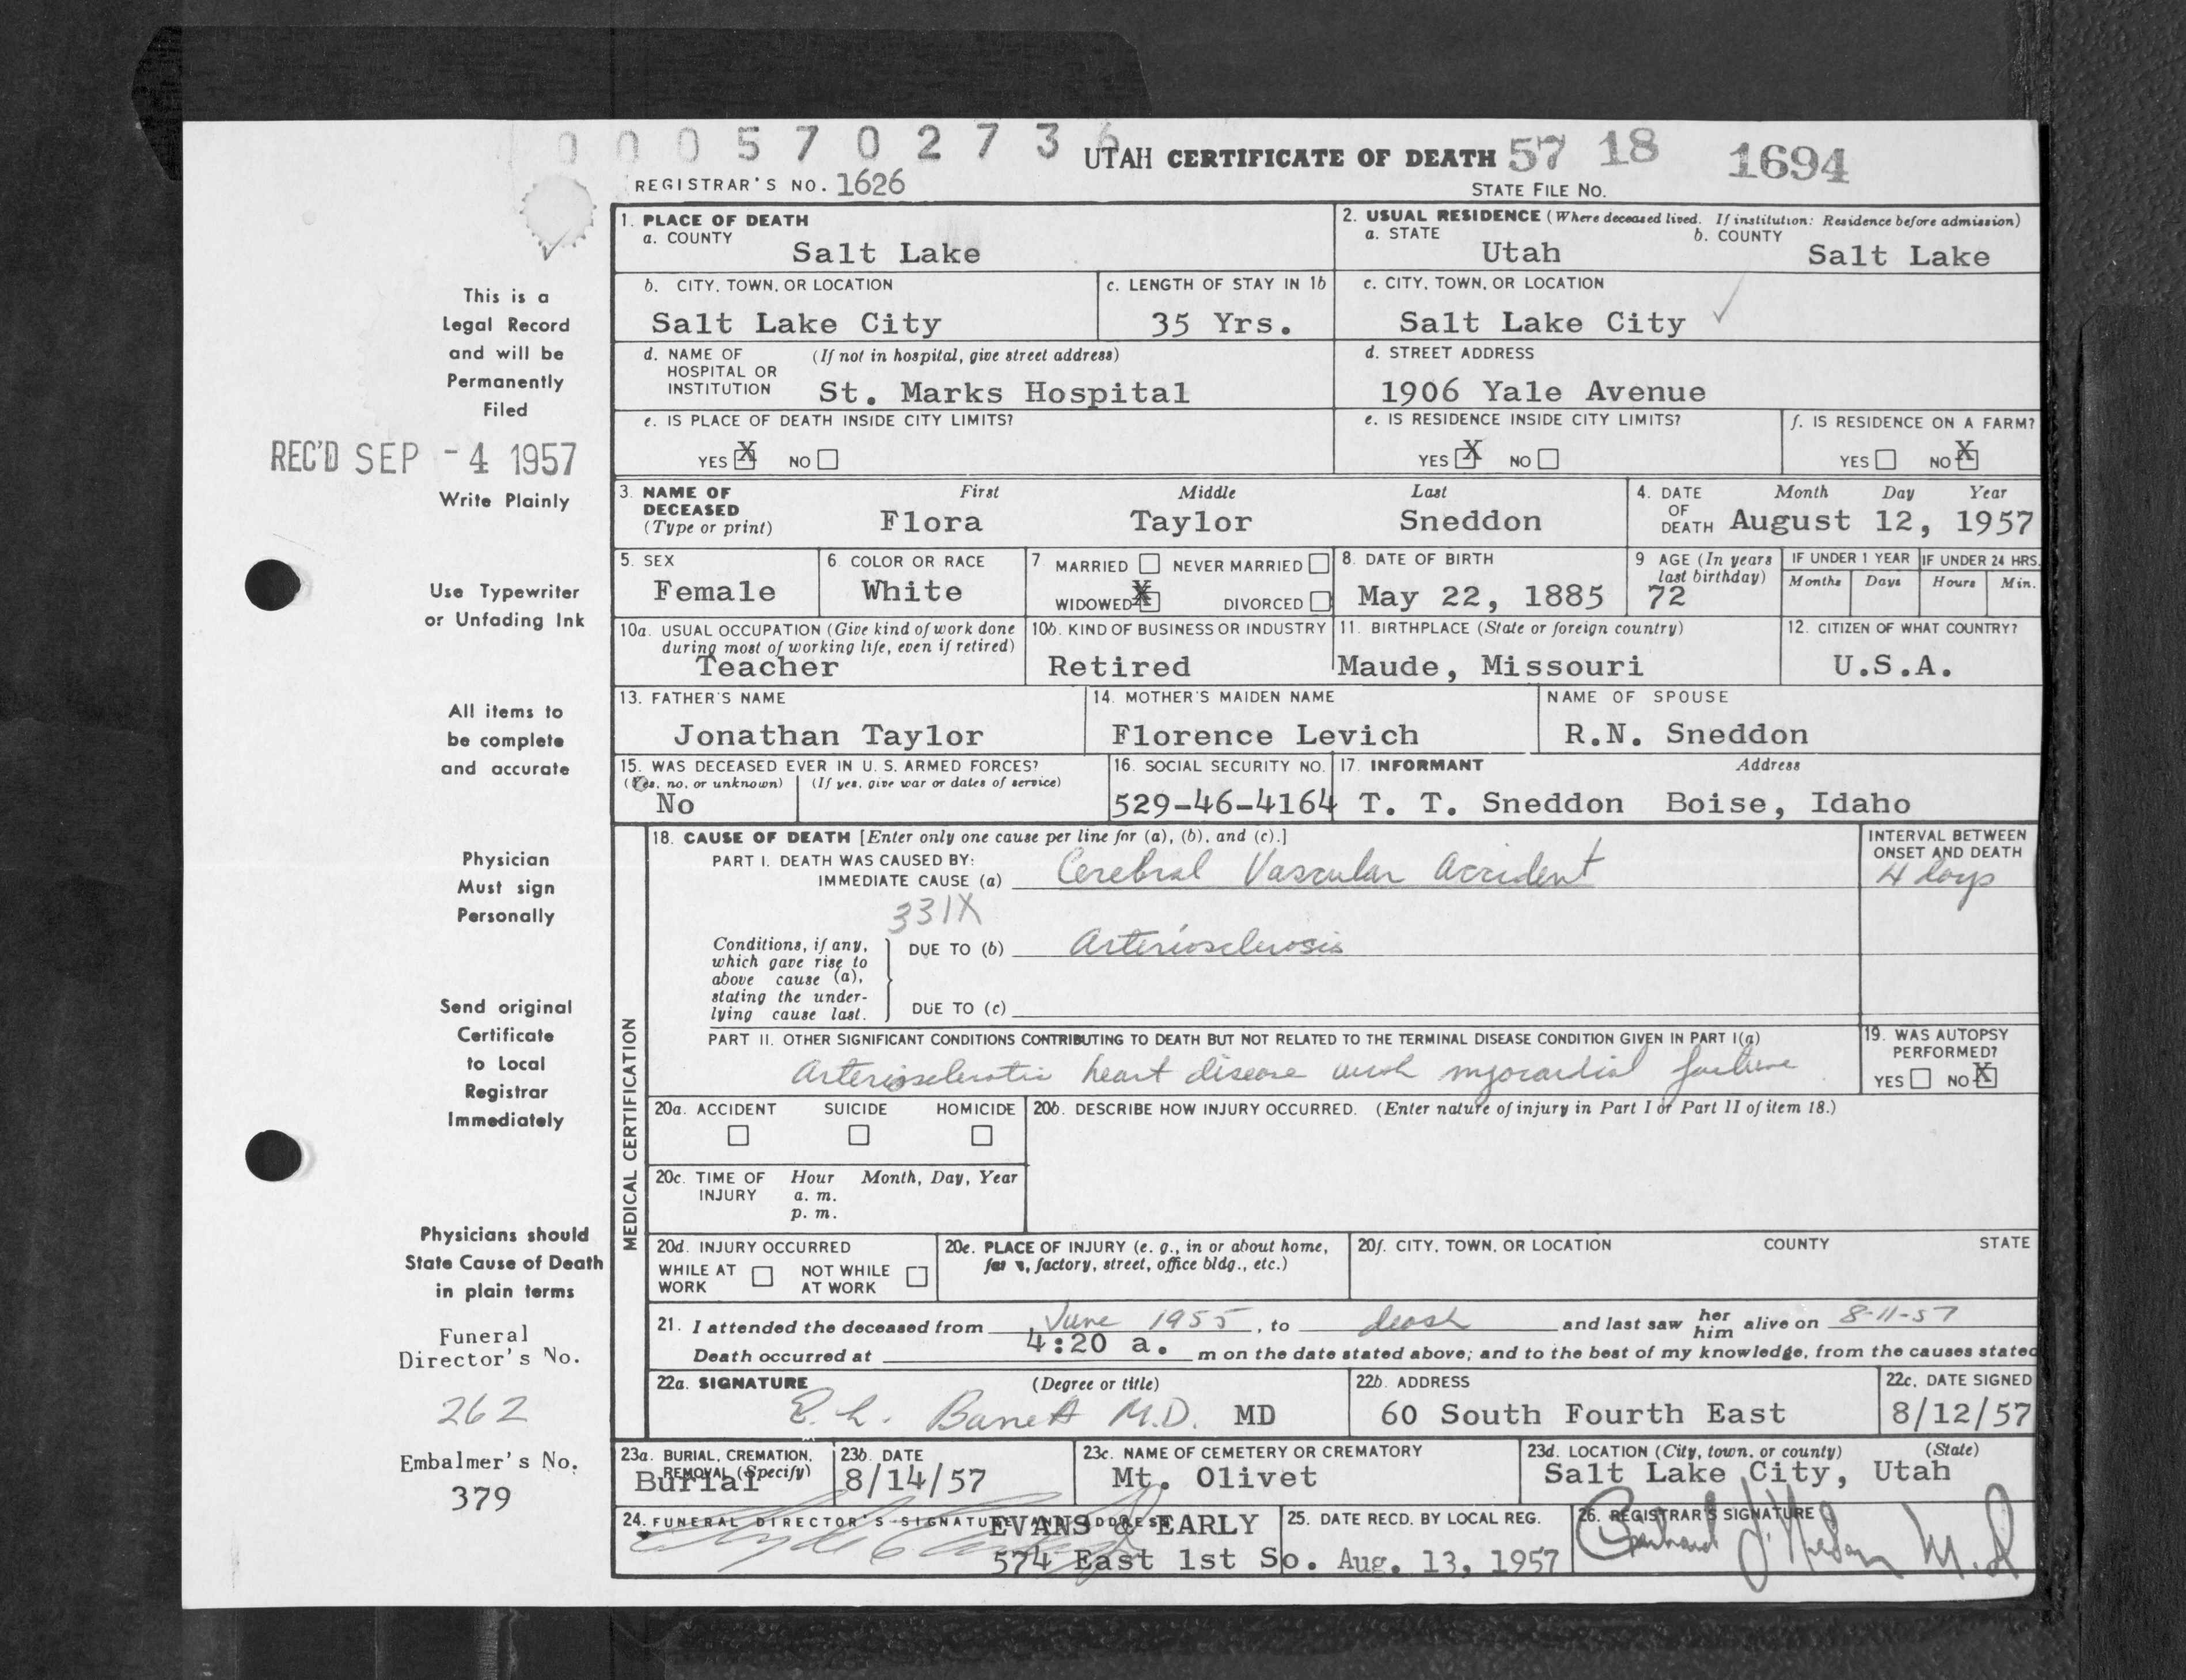 0 0 0 5 7 0 2 7 3 6
UTAH CERTIFICATE OF DEATH 57 18 1694
REGISTRAR'S NO. 1626
STATE FILE NO.
This is a
Legal Record
and will be
Permanently
Filed
REC'D SEP - 4 1957
Write Plainly
Use Typewriter
or Unfading Ink
All items to
be complete
and accurate
Physician
Must sign
Personally
Send original
Certificate
to Local
Registrar
Immediately
Physicians should
State Cause of Death
in plain terms
Funeral
Director's No.
262
Embalmer's No.
379
1. PLACE OF DEATH
a. COUNTY
Salt Lake
2. USUAL RESIDENCE (Where deceased lived. If institution: Residence before admission)
a. STATE
Utah
b. COUNTY
Salt Lake
b. CITY, TOWN, OR LOCATION
Salt Lake City
c. LENGTH OF STAY IN 1b
35 Yrs.
c. CITY, TOWN, OR LOCATION
Salt Lake City
d. NAME OF (If not in hospital, give street address)
HOSPITAL OR
INSTITUTION St. Marks Hospital
d. STREET ADDRESS
1906 Yale Avenue
e. IS PLACE OF DEATH INSIDE CITY LIMITS?
YES X NO
e. IS RESIDENCE INSIDE CITY LIMITS?
YES X NO
f. IS RESIDENCE ON A FARM?
YES NO X
3. NAME OF First Middle Last
DECEASED
(Type or print) Flora Taylor Sneddon
4. DATE Month Day Year
OF
DEATH August 12, 1957
5. SEX
Female
6. COLOR OR RACE
White
7 MARRIED NEVER MARRIED
WIDOWED X DIVORCED
8. DATE OF BIRTH
May 22, 1885
9 AGE (In years
last birthday)
72
IF UNDER 1 YEAR IF UNDER 24 HRS.
Months Days Hours Min.
10a. USUAL OCCUPATION (Give kind of work done
during most of working life, even if retired)
Teacher
10b. KIND OF BUSINESS OR INDUSTRY
Retired
11. BIRTHPLACE (State or foreign country)
Maude, Missouri
12. CITIZEN OF WHAT COUNTRY?
U.S.A.
13. FATHER'S NAME
Jonathan Taylor
14. MOTHER'S MAIDEN NAME
Florence Levich
NAME OF SPOUSE
R.N. Sneddon
15. WAS DECEASED EVER IN U. S. ARMED FORCES?
(Yes, no, or unknown) (If yes, give war or dates of service)
No
16. SOCIAL SECURITY NO.
529-46-4164
17. INFORMANT Address
T. T. Sneddon Boise, Idaho
MEDICAL CERTIFICATION
18. CAUSE OF DEATH [Enter only one cause per line for (a), (b), and (c).]
PART I. DEATH WAS CAUSED BY:
IMMEDIATE CAUSE (a) Cerebral Vascular Accident
INTERVAL BETWEEN
ONSET AND DEATH
4 days
331X
Conditions, if any,
which gave rise to
above cause (a),
stating the under-
lying cause last.
DUE TO (b) Arteriosclerosis
DUE TO (c)
PART II. OTHER SIGNIFICANT CONDITIONS CONTRIBUTING TO DEATH BUT NOT RELATED TO THE TERMINAL DISEASE CONDITION GIVEN IN PART I(a)
Arteriosclerotic heart disease with myocardial failure
19. WAS AUTOPSY
PERFORMED?
YES NO X
20a. ACCIDENT SUICIDE HOMICIDE
20b. DESCRIBE HOW INJURY OCCURRED. (Enter nature of injury in Part I or Part II of item 18.)
20c. TIME OF Hour Month, Day, Year
INJURY a. m.
p. m.
20d. INJURY OCCURRED
WHILE AT NOT WHILE
WORK AT WORK
20e. PLACE OF INJURY (e. g., in or about home,
factory, street, office bldg., etc.)
20f. CITY, TOWN, OR LOCATION COUNTY STATE
21. I attended the deceased from June 1955, to death and last saw her him alive on 8-11-57
Death occurred at 4:20 a. m on the date stated above; and to the best of my knowledge, from the causes stated
22a. SIGNATURE (Degree or title)
E. L. Barrett M.D. MD
22b. ADDRESS
60 South Fourth East
22c. DATE SIGNED
8/12/57
23a. BURIAL, CREMATION,
REMOVAL (Specify)
Burial
23b. DATE
8/14/57
23c. NAME OF CEMETERY OR CREMATORY
Mt. Olivet
23d. LOCATION (City, town, or county) (State)
Salt Lake City, Utah
24. FUNERAL DIRECTOR'S SIGNATURE AND ADDRESS
EVANS & EARLY
574 East 1st So.
25. DATE RECD. BY LOCAL REG.
Aug. 13, 1957
26. REGISTRAR'S SIGNATURE
M.D